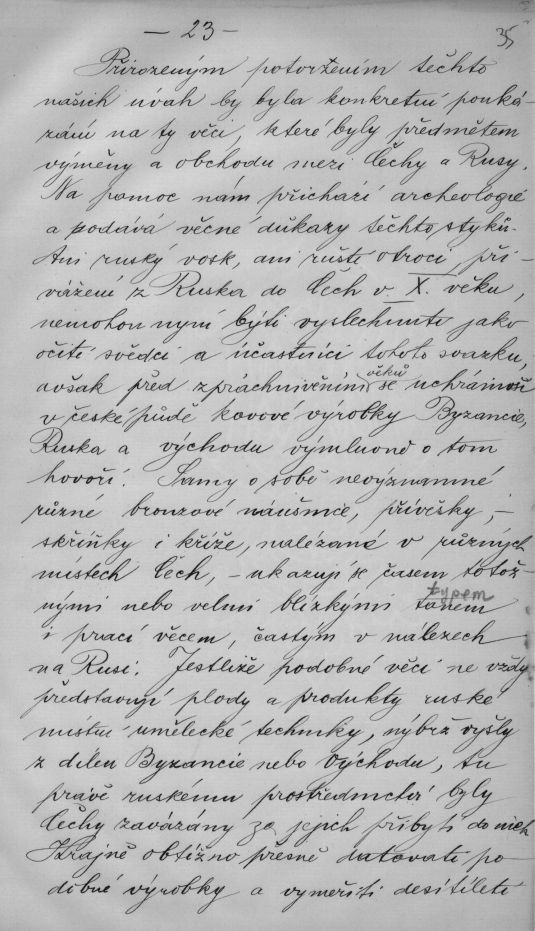 — 23 —
35
Přirozeným potvržením těchto
našich úvah by byla konkretní pouká-
zání na ty věci, které byly předmětem
výměny a obchodu mezi Čechy a Rusy.
Na pomoc nám přichází archeologie
a podává věcné důkazy těchto styků.
Ani ruský vosk, ani ruští otroci při-
vážení z Ruska do Čech v X. věku,
nemohou nyní býti vyslechnuti jako
očití svědci a účastníci tohoto svazku,
věků
avšak před zpráchnivěním se uchránivší
v české půdě kovové výrobky Byzancie,
Ruska a východu výmluvně o tom
hovoří. Samy o sobě nevýznamné
různé bronzové náušnice, přívěšky, –
skříňky i kříže, nalézané v různých
místech Čech, – ukazují se časem totož-
typem
nými nebo velmi blízkými tónem
i prací věcem, častým v nálezech
na Rusi. Jestliže podobné věci ne vždy
představují plody a produkty ruské
místní umělecké techniky, nýbrž vyšly
z dílen Byzancie nebo Východu, tu
právě ruskému prostřednictví byly
Čechy zavázány za jejich přibytí do nich
Krajně obtížno přesně datovati po-
dobné výrobky a vyměřiti desítiletí